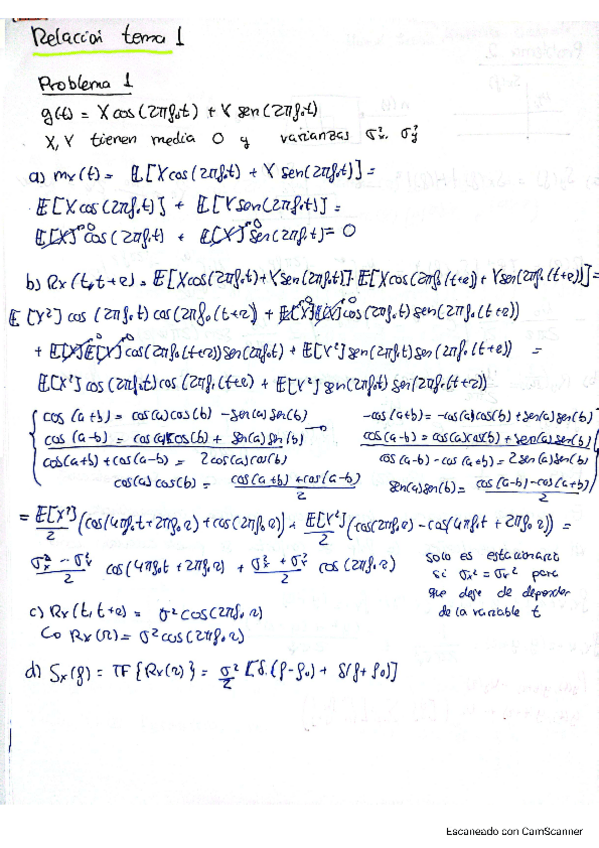 Relación tema 1
Problema 1
g(t) = X cos(2πf₀t) + Y sen(2πf₀t)
X, Y tienen media 0 y varianzas σ²x, σ²y
a) mx(t) = E[X cos(2πf₀t) + Y sen(2πf₀t)] =
E[X cos(2πf₀t)] + E[Y sen(2πf₀t)] =
E[X]→0 cos(2πf₀t) + E[Y]→0 sen(2πf₀t) = 0
b) Rx(t, t+τ) = E[X cos(2πf₀t) + Y sen(2πf₀t)]· E[X cos(2πf₀(t+τ)) + Y sen(2πf₀(t+τ))] =
E[X²] cos(2πf₀t) cos(2πf₀(t+τ)) + E[X]→0 E[Y]→0 cos(2πf₀t) sen(2πf₀(t+τ))
+ E[X]→0 E[Y]→0 cos(2πf₀(t+τ)) sen(2πf₀t) + E[Y²] sen(2πf₀t) sen(2πf₀(t+τ)) =
E[X²] cos(2πf₀t) cos(2πf₀(t+τ) + E[Y²] sen(2πf₀t) sen(2πf₀(t+τ))
cos(a+b) = cos(a)cos(b) - sen(a)sen(b)
cos(a-b) = cos(a)cos(b) + sen(a)sen(b) →
cos(a+b) + cos(a-b) = 2cos(a)cos(b)
cos(a)cos(b) = (cos(a+b) + cos(a-b))/2
-cos(a+b) = -cos(a)cos(b) + sen(a)sen(b)
cos(a-b) = cos(a)cos(b) + sen(a)sen(b)
cos(a-b) - cos(a+b) = 2sen(a)sen(b)
sen(a)sen(b) = (cos(a-b) - cos(a+b))/2
= E[X²]/2 (cos(4πf₀t + 2πf₀τ) + cos(2πf₀τ)) + E[Y²]/2 (cos(2πf₀τ) - cos(4πf₀t + 2πf₀τ)) =
(σ²x - σ²y)/2 cos(4πf₀t + 2πf₀τ) + (σ²x + σ²y)/2 cos(2πf₀τ)
solo es estacionario
si σx² = σy² para
que deje de depender
de la variable t
c) Rx(t, t+τ) = σ² cos(2πf₀τ)
↳ Rx(τ) = σ² cos(2πf₀τ)
d) Sx(f) = TF{Rx(τ)} = σ²/2 [δ(f-f₀) + δ(f+f₀)]
Escaneado con CamScanner